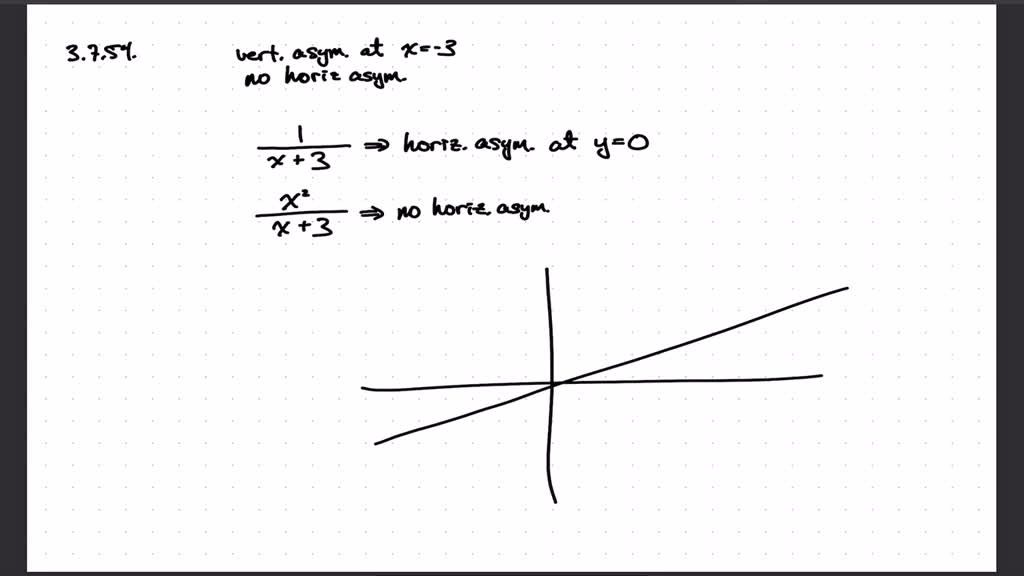 3.7.54.
vert. asym. at x=-3
no horiz asym.
1/(x+3) ⇒ horiz. asym. at y=0
x²/(x+3) ⇒ no horiz. asym.